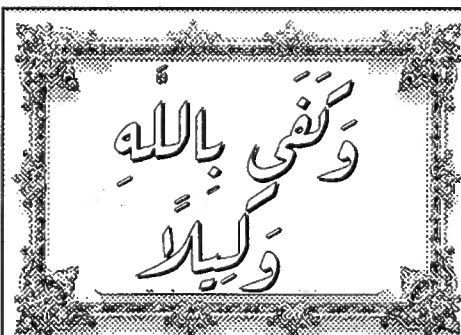 وَكَفَى بِاللَّهِ
وَكِيلًا